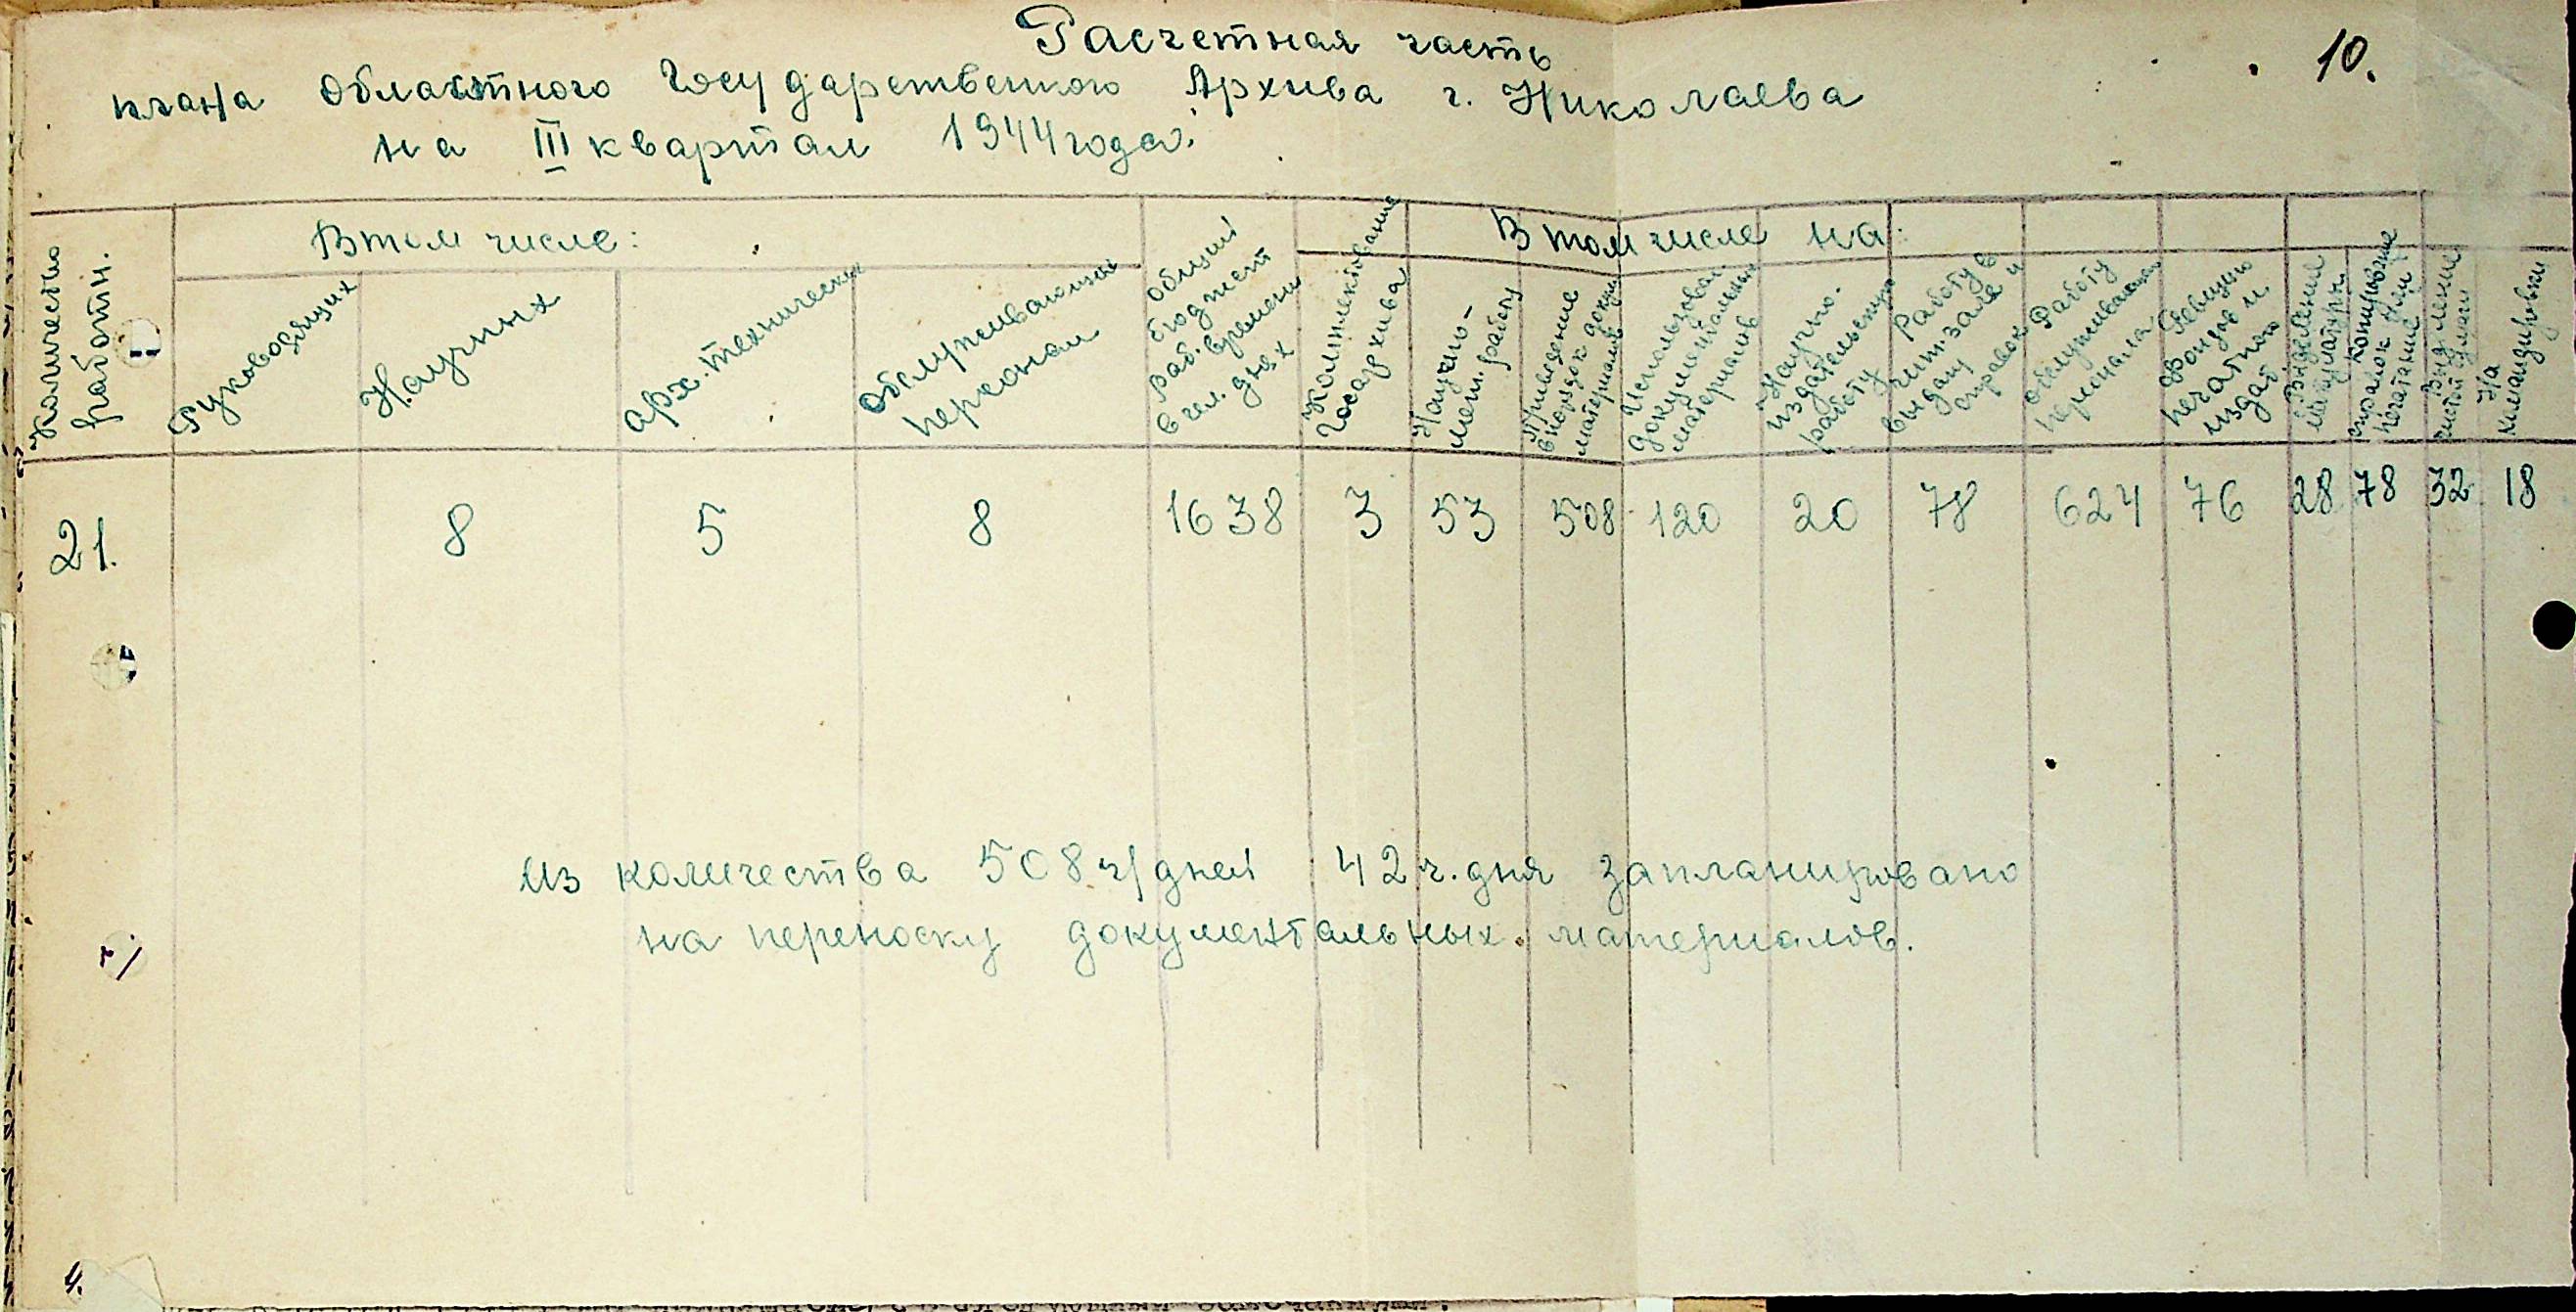 10.
Расчетная часть
плана Областного Государственного Архива г. Николаева
на III квартал 1944 года.
Количество
работн.
В том числе:
Руководящих
Научных
арх. технических
Обслуживающий
персонал
Общий
бюджет
раб. времени
в чел. днях
В том числе на:
Комплектование
Госархива
Научно-
мет. работу
Приведение
в порядок докум.
материалов
Использован.
документальных
материалов
Научно.
издательскую
работу
Работу в
чит. зале и
выдачу
справок
Работу
обслуживающ.
персонала
Ревизию
Фондов и
печатной
издат.
Выделение
макулатуры
копирование
справок или
печатание
Выделение
чист. бумаги
На
командировки
21.
8
5
8
1638
3
53
508
120
20
78
624
76
28
78
32
18
Из количества 508 ч/дней 42 ч. дня запланировано
на переноску документальных материалов.
4.